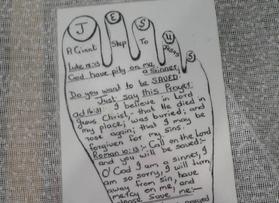 J E S U S
A Giant Step To Jesus
Luke 18:13
God have pity on me a sinner
Do you want to be SAVED
Just say this Prayer
I believe in Lord
Jesus Christ, that he died in
my place; was buried; and
rose again; that I may be
forgiven for my sins.
Romans 10:13:- Call on the Lord
and you will be saved:-
O' God I am a sinner, I
am so sorry, I will turn
away from sin, have
mercy on me, and
Save me:-